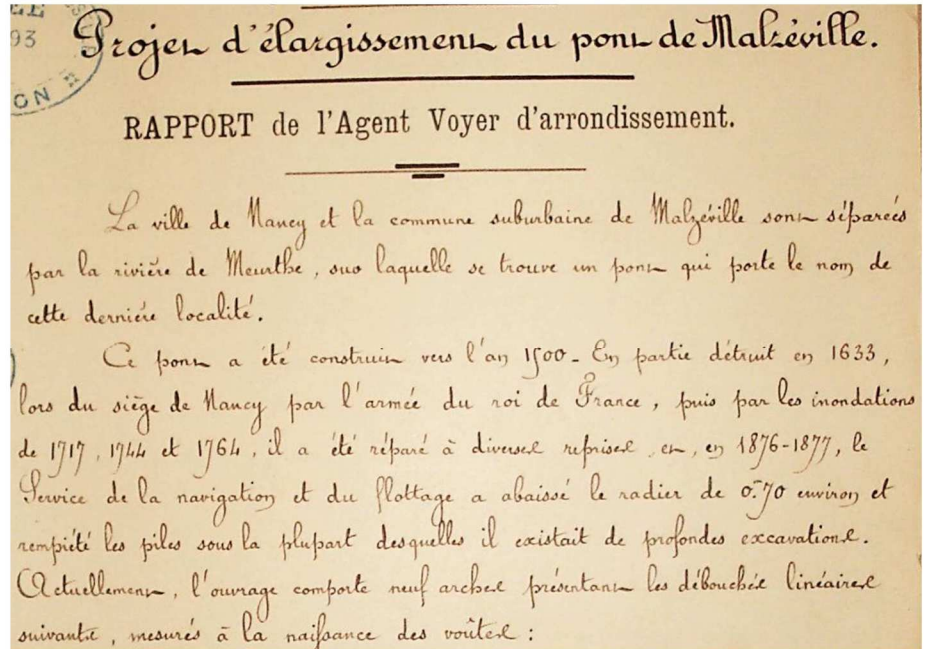 93
ON
Projet d'élargissement du pont de Malzéville.
RAPPORT de l'Agent Voyer d'arrondissement.
La ville de Nancy et la commune suburbaine de Malzéville sont séparées
par la rivière de Meurthe, sur laquelle se trouve un pont qui porte le nom de
cette dernière localité.
Ce pont a été construit vers l'an 1500 - En partie détruit en 1633,
lors du siège de Nancy par l'armée du roi de France, puis par les inondations
de 1717, 1744 et 1764, il a été réparé à diverses reprises et, en 1876-1877, le
Service de la navigation et du flottage a abaissé le radier de 0m70 environ et
rempiété les piles sous la plupart desquelles il existait de profondes excavations.
Actuellement, l'ouvrage comporte neuf arches présentant les débouchés linéaires
suivants, mesurés à la naissance des voûtes :